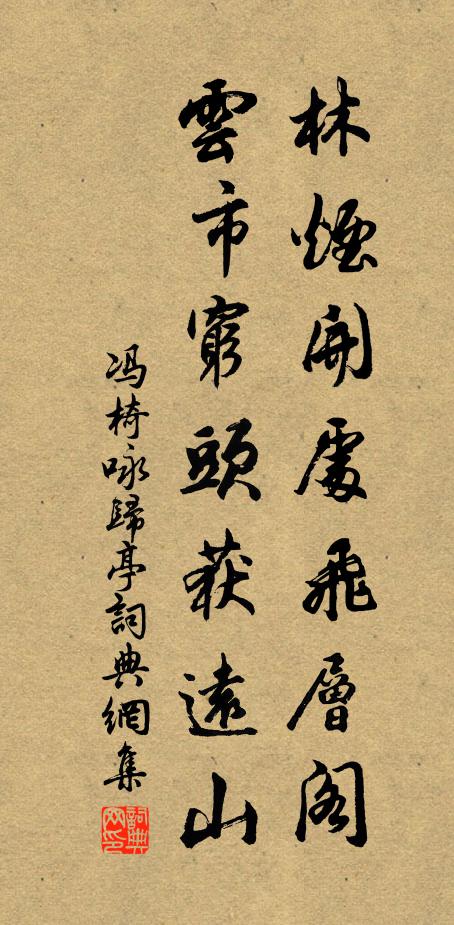 林煙開處飛層閣
雲市窮頭荻遠山
冯椅咏歸亭詞典網集
詞典網印